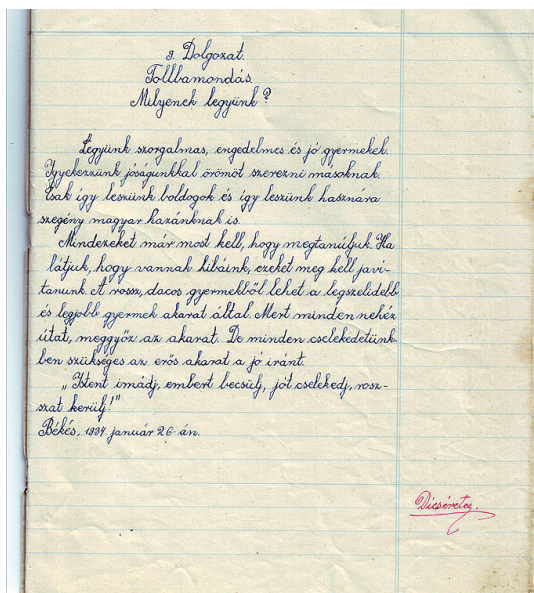 9. Dolgozat.
Tollbamondás.
Milyenek legyünk?
Legyünk szorgalmas, engedelmes és jó gyermekek.
Igyekezzünk jóságunkkal örömöt szerezni másoknak.
Csak így leszünk boldogok és így leszünk hasznára
szegény magyar hazánknak is.
Mindezeket már most kell, hogy megtanúljuk. Ha
látjuk, hogy vannak hibáink, ezeket meg kell javi-
tanunk. A rossz, dacos gyermekből lehet a legszelidebb
és legjobb gyermek akarat által. Mert minden nehéz
útat, meggyőz az akarat. De minden cselekedetünk-
ben szükséges az erős akarat a jó iránt.
„Istent imádj, embert becsülj, jót cselekedj, rosz-
szat kerülj!"
Békés, 1934 január 26-án.
Dicséretes.